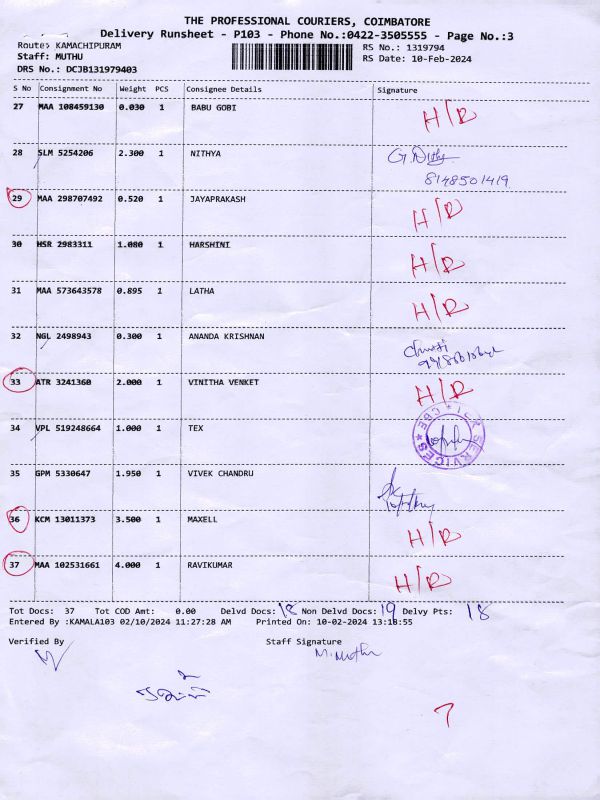 THE PROFESSIONAL COURIERS, COIMBATORE
Delivery Runsheet - P103 - Phone No.:0422-3505555 - Page No.:3
Route: KAMACHIPURAM RS No.: 1319794
Staff: MUTHU RS Date: 10-Feb-2024
DRS No.: DCJB131979403
S No Consignment No Weight PCS Consignee Details Signature
27 MAA 108459130 0.030 1 BABU GOBI H/R
28 SLM 5254206 2.300 1 NITHYA
8148501419
29 MAA 298707492 0.520 1 JAYAPRAKASH H/R
30 HSR 2983311 1.080 1 HARSHINI H/R
31 MAA 573643578 0.895 1 LATHA H/R
32 NGL 2498943 0.300 1 ANANDA KRISHNAN
33 ATR 3241360 2.000 1 VINITHA VENKET H/R
34 VPL 519248664 1.000 1 TEX SERVICES CBE
35 GPM 5330647 1.950 1 VIVEK CHANDRU
36 KCM 13011373 3.500 1 MAXELL H/R
37 MAA 102531661 4.000 1 RAVIKUMAR H/R
Tot Docs: 37 Tot COD Amt: 0.00 Delvd Docs: 18 Non Delvd Docs: 19 Delvy Pts: 18
Entered By :KAMALA103 02/10/2024 11:27:28 AM Printed On: 10-02-2024 13:18:55
Verified By Staff Signature
M. Muthu
7